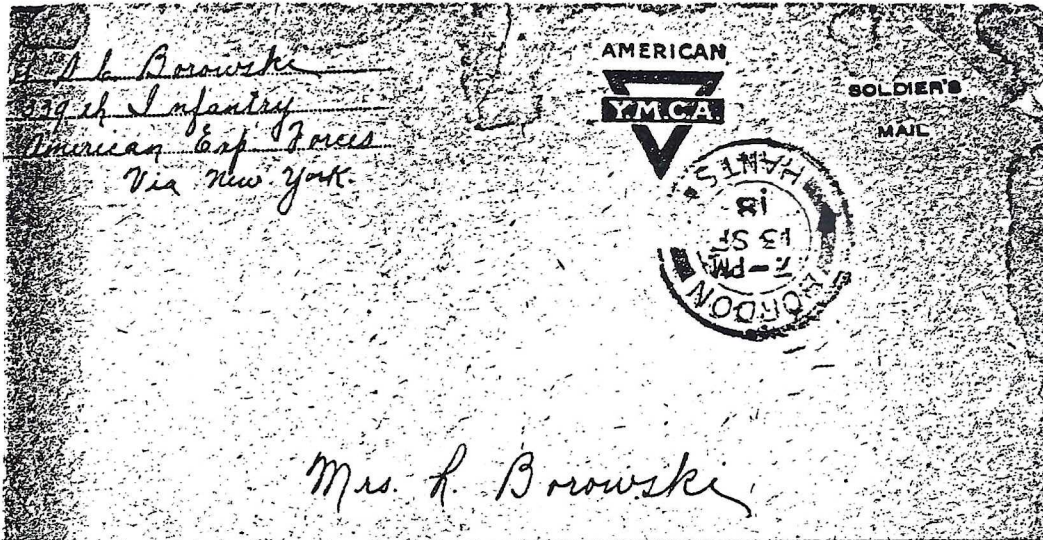 A L Borowski
339th Infantry
American Exp Forces
Via New York.
AMERICAN
Y.M.C.A.
SOLDIER'S
MAIL
BORDON
7-PM
13 SP
18
HANTS
Mrs. R. Borowski